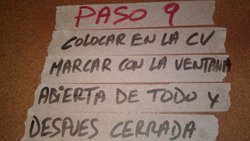 PASO 9
COLOCAR EN LA CV
MARCAR CON LA VENTANA
ABIERTA DE TODO Y
DESPUES CERRADA